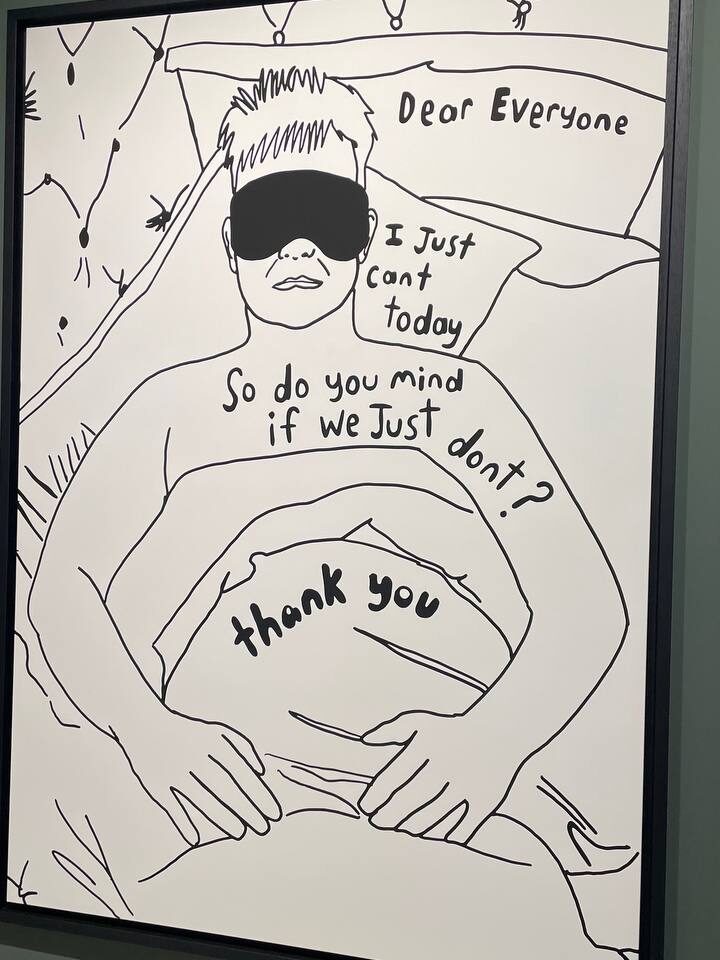 Dear Everyone
I Just
cant
today
So do you mind
if we Just dont?
thank you